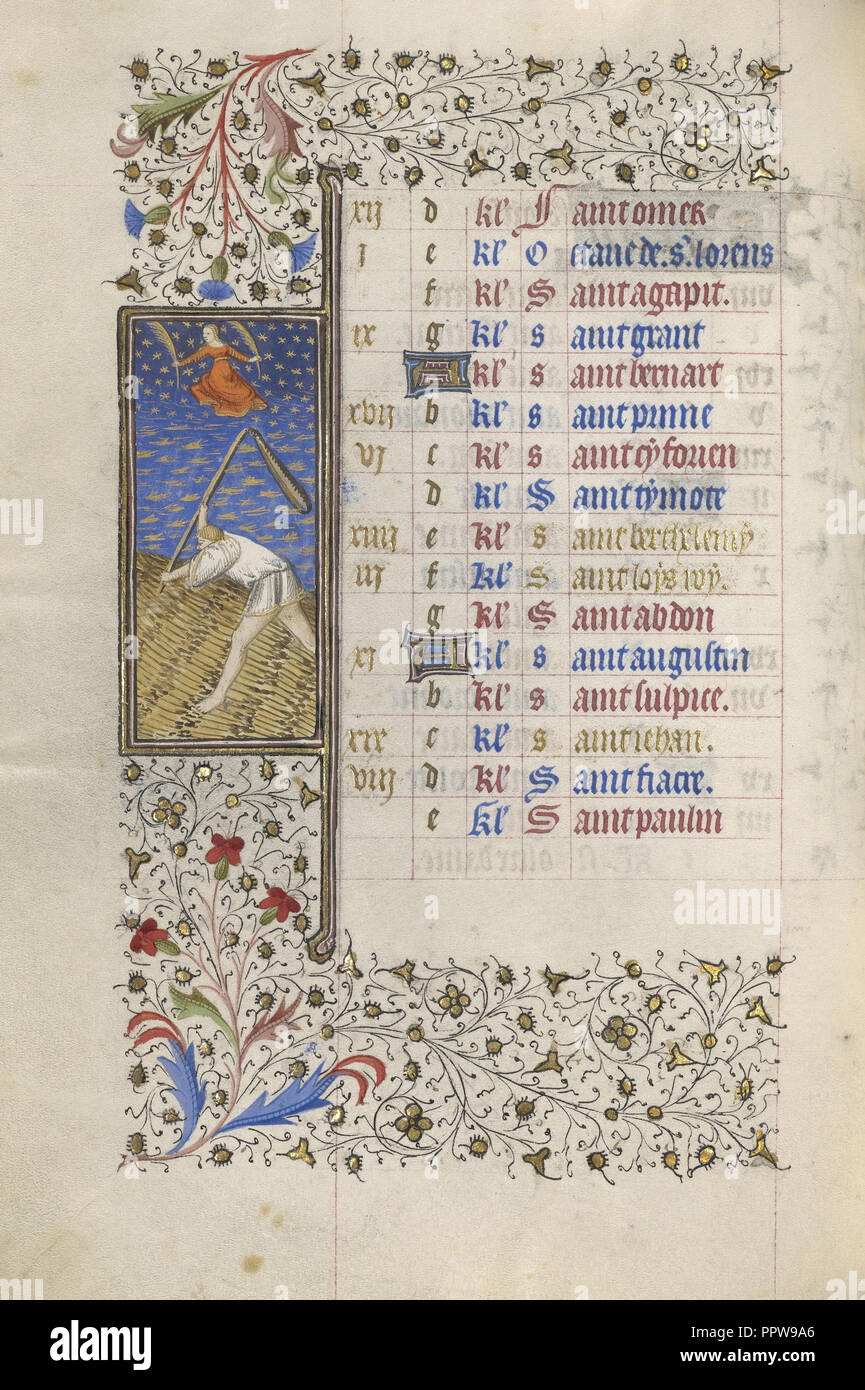 xij d kl' Saint omer
j e kl' Octave de. s. lorens
f kl' Saint agapit.
ix g kl' saint grant
A kl' saint bernart
xvij b kl' saint prinne
vj c kl' saint cyforien
d kl' Saint tymote
xiiij e kl' saint berthelemy
iij f kl' Saint loys roy.
g kl' Saint abdon
xj A kl' saint augustin
b kl' saint sulpice.
xix c kl' saint iehan.
viij d kl' Saint fiacre.
e kl' Saint paulin
alamy
alamy
Image ID: PPW9A6
www.alamy.com